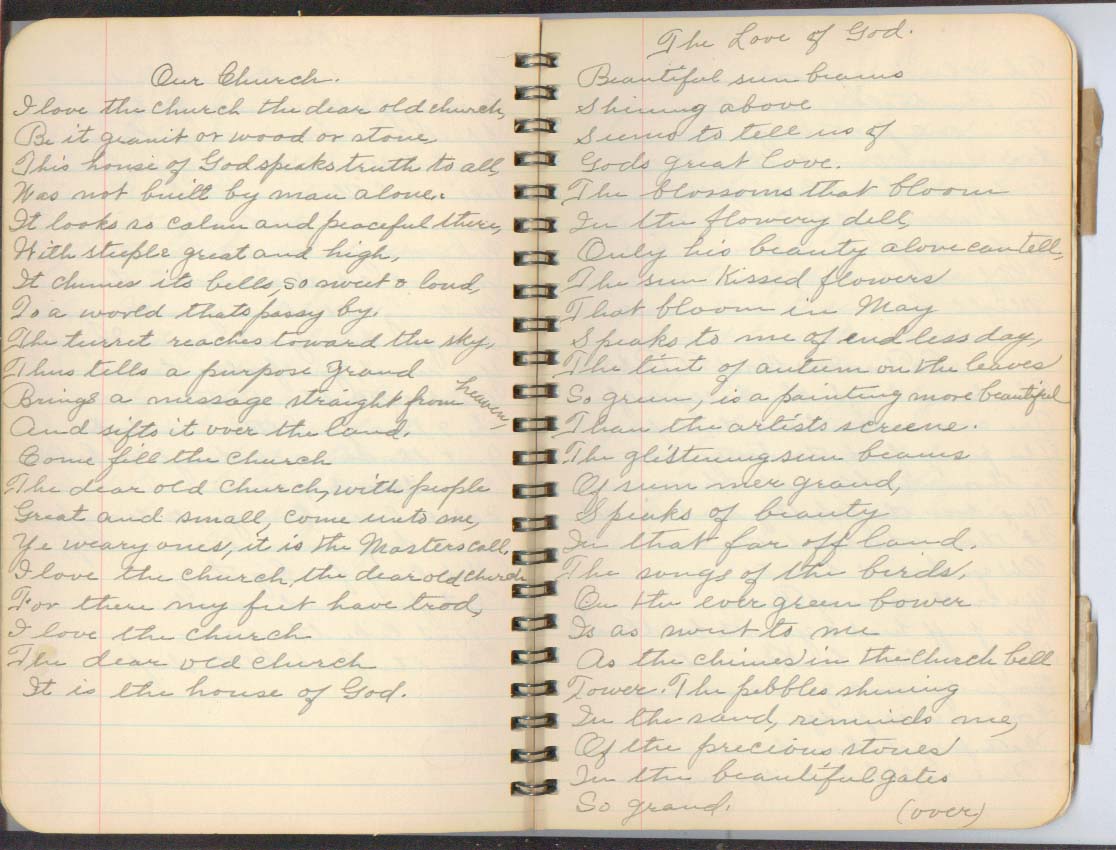 Our Church.
I love the church the dear old church,
Be it granit or wood or stone,
This house of God speaks truth to all,
Was not built by man alone.
It looks so calm and peaceful there,
With steeple great and high,
It chimes its bells, so sweet & loud,
To a world thats passy by.
The turret reaches toward the sky,
Thus tells a purpose grand
Brings a message straight from heaven,
And sifts it over the land.
Come fill the church
The dear old church, with people
Great and small, come unto me,
Ye weary ones, it is the Masters call.
I love the church, the dear old church
For there my feet have trod,
I love the church
The dear old church
It is the house of God.
The Love of God.
Beautiful sun beams
Shining above
Seems to tell us of
Gods great love.
The blossoms that bloom
In the flowery dell,
Only his beauty alone can tell,
The sun kissed flowers
That bloom in May
Speaks to me of endless day,
The tint of autumn on the leaves
So green, is a painting more beautiful
Than the artists screene.
The glistening sun beams
Of summer grand,
Speaks of beauty
In that far off land.
The songs of the birds,
On the ever green bower
Is as sweet to me
As the chimes in the church bell
Tower. The pebbles shining
In the sand, reminds me,
Of the precious stones
In the beautiful gates
So grand.
(over)